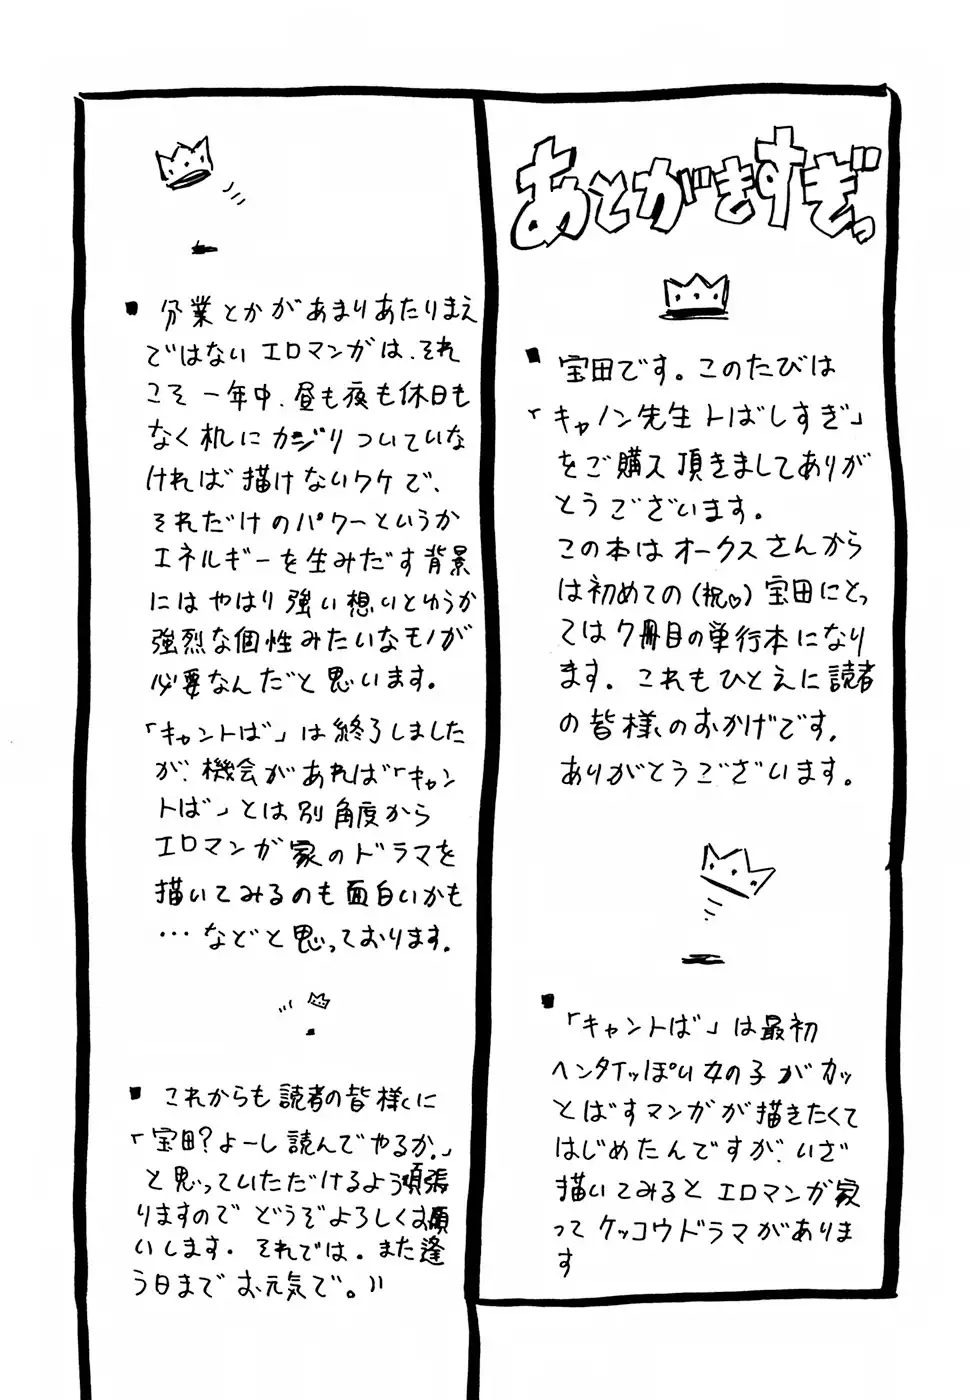 あとがきすぎっ
■宝田です。このたびは
「キャノン先生トばしすぎ」
をご購入頂きましてありが
とうございます。
この本はオークスさんから
は初めての(祝♡)宝田にとっ
ては7冊目の単行本になり
ます。これもひとえに読者
の皆様のおかげです。
ありがとうございます。
■「キャントば」は最初
ヘンタイっぽい女の子がカッ
とばすマンガが描きたくて
はじめたんですが、いざ
描いてみるとエロマンガ家
ってケッコウドラマがありま
す
■分業とかがあまりあたりまえ
ではないエロマンガは、それ
こそ一年中、昼も夜も休日も
なく机にカジりついていな
ければ描けないワケで、
それだけのパワーというか
エネルギーを生みだす背景
にはやはり強い想いとゆうか
強烈な個性みたいなモノが
必要なんだと思います。
「キャントば」は終了しました
が、機会があれば「キャン
トば」とは別角度から
エロマンガ家のドラマを
描いてみるのも面白いかも
…などと思っております。
■これからも読者の皆様に
「宝田?よーし読んでやるか。」
と思っていただけるよう頑張
りますのでどうぞよろしくお願
いします。それでは。また逢
う日までお元気で。))